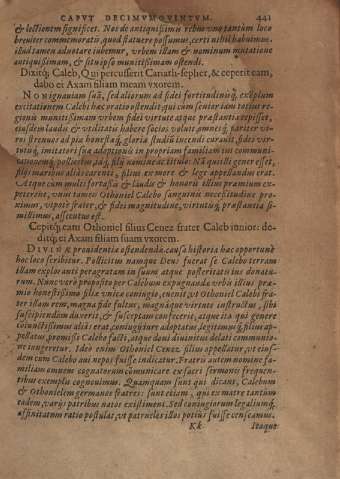 CAPVT DECIMVMQVINTVM. 441
& lectionem significet. Nos de antiquissimis rebus non tantùm loco
breuiter commemoratis, quod statuere possimus, certi nihil habuimus:
illud tamen adnotare iubemur, vrbem illam & nominum mutatione
antiquissimam, & situ ipso munitissimam ostendi.
Dixitq́; Caleb, Qui percusserit Cariath-sepher, & ceperit eam,
dabo ei Axam filiam meam vxorem.
NON ignauiam suã, sed aliorum ad fidei fortitudinisq́; exemplum
excitationem Calebi hæc oratio ostendit, qui cum seniorum totius re-
gionis munitissimam vrbem fidei virtute atque præstantia cepisset,
eiusdem laudis & vtilitatis habere socios voluit omnesq́; pariter vi-
ros strenuos ad pia honestaq́; gloriæ studia incendi curauit, fidei vir-
tutisq́; imitatori suæ adoptionis in propriam familiam ius communi-
cationemq́; pollicitus,
filij maribus alijs carenti, filius ex more & lege appellandus erat.
Atque cum multi fortassis & laudis & honoris illius præmium ex-
peterent, vnus tamen Othoniel Calebo sanguinis necessitudine pro-
ximus, vtpote frater, & fidei magnitudine, virtutisq́; præstantia si-
millimus, assecutus est.
Cepitq́; eam Othoniel filius Cenez frater Caleb iunior: de-
ditq́; ei Axam filiam suam vxorem.
DIVINÆ prouidentiæ ostendendæ causa historia hæc opportunè
hoc loco scribitur. Pollicitus namque Deus fuerat se Calebo terram
illam exploranti peragratam in suum atque posteritatis ius donatu-
rum. Nunc verò proposito per Calebum expugnandæ vrbis illius præ-
mio honestissimo filiæ vnicæ coniugio, euenit, vt Othoniel Calebi fra-
ter illam rem, magna fide fultus, magnaque virtute instructus, sibi
suscipiendam duxerit, & susceptam confecerit, atque ita qui genere
coniunctissimus alias erat, coniugij iure adoptatus, legitimusq́; filius ap-
pellatus, promissa Calebo facta, atque domi diuinitus delata communi-
one iungeretur. Ideo enim Othoniel Cenez filius appellatur, vt eius-
dem cum Calebo aui nepos fuisse indicatur. Fratris autem nomine fa-
miliam omnem cognatorum cõmunicare ex sacri sermonis frequen-
tibus exemplis cognouimus. Quamquam sunt qui dicant, Calebum
& Othonielem germanos fratres: sunt etiam, qui ex matre tantùm
eadem, varijs patribus natos existiment. Sed coniugiorum legaliumq́;
affinitatum ratio postulat, vt patrueles illos potius fuisse censeamus.
Kk Itaque